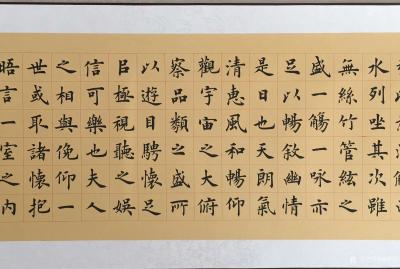 水列坐其次雖
無絲竹管絃之
盛一觴一詠亦
足以暢敘幽情
是日也天朗氣
清惠風和暢仰
觀宇宙之大俯
察品類之盛所
以遊目騁懷足
㠯極視聽之娛
信可樂也夫人
之相與俛仰一
世或取諸懷抱
晤言一室之內